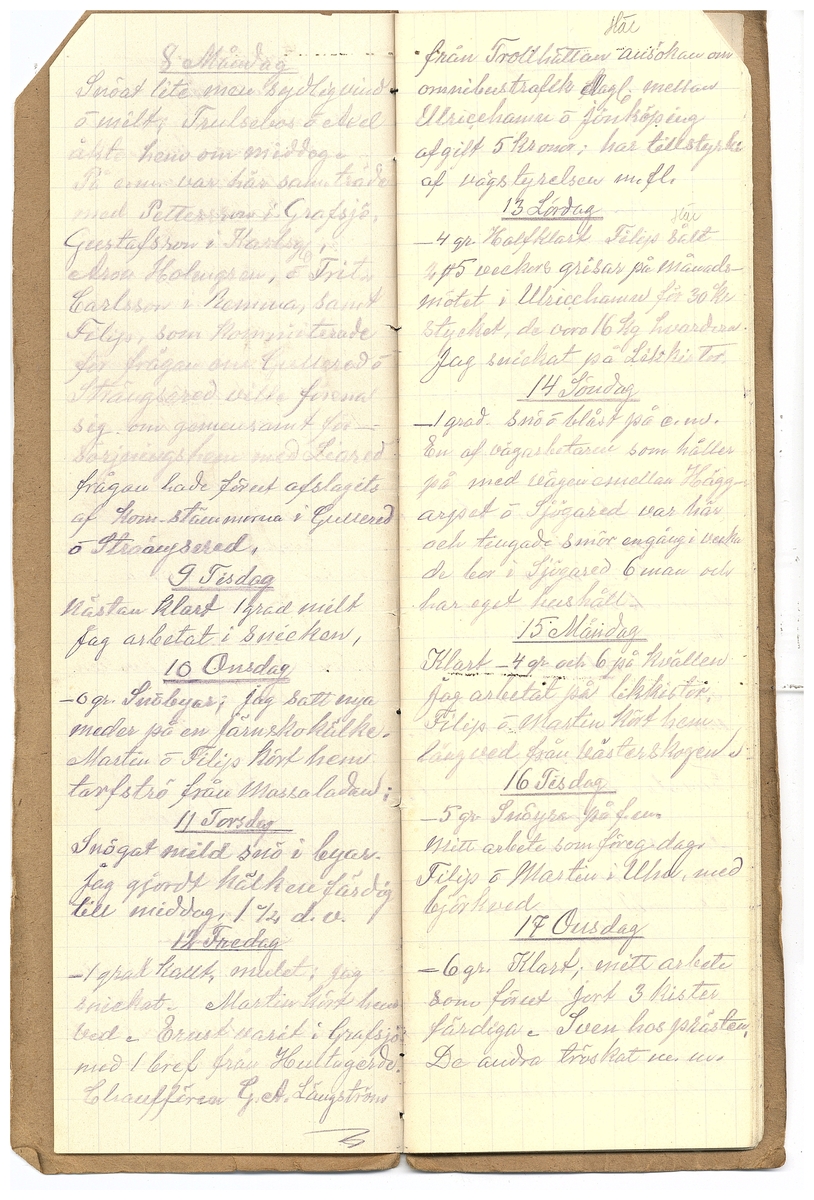 8 Måndag
Snöat lite men sydlig vind
ö milt, Trulsebos ö Axel
åkte hem om middag.
På e.m. var här samträde
med Pettersson i Grafsjö,
Gustafsson i Karlsg,
Arva Holmgren, ö Fritz
Carlsson i Remma, samt
Filip, som kommiterade
för frågan om Gullered ö
Strängsered ville förena
sig om gemensamt för-
sörjningshem med Liared
frågan hade förut afslagits
af kom-stämmorna i Gullered
ö Strängsered,
9 Tisdag
Nästan klart 1 grad milt
jag arbetat i snicken,
10 Onsdag
-0 gr. Snöbyar; jag satt nya
meder på en järnskokälke.
Martin ö Filip kört hem
tarfströ från Mossaladan;
11 Torsdag
Snögat mild snö i byar.
Jag gjordt kälken färdig
till middag, 1 1/2 d.v.
12 Fredag
-1 grad kallt, mulet; jag
snickat. Martin kört hem
ved. Ernst varit i Grafsjö
med 1 bref från Hultagerde.
Chauffören G. A. Långström
från Trollhättan ansökan om
omnibustrafik dagl. mellan
Ulricehamn ö Jönköping
afgift 5 kronor; har tillstyrks
af vägstyrelsen m.fl.
13 Lördag
-4 gr. Halfklart Filip här sålt
5 veckors grisar på månads-
mötet i Ulricehamn för 30 kr
stycket, de voro 16 kg hvardera.
Jag snickat på Likkistor.
14 Söndag
-1 grad. snö ö blåst på e.m.
En af vägarbetaren som håller
på med vägen emellan Hägg-
arpet ö Sjögared var här
och tingade smör engång i veckan
de bor i Sjögared 6 man och
har eget hushåll.
15 Måndag
Klart -4 gr. och 6 på kvällen
jag arbetat på likkistor,
Filip ö Martin kört hem
långved från Västerskogen.
16 Tisdag
-5 gr Snöyra på f.m.
Mitt arbete som föreg. dag.
Filip ö Martin i Uhn, med
björkved
17 Onsdag
-6 gr. Klart; mitt arbete
som förut gort 3 kister
färdiga. Sven hos prästen.
De andra tröskat m.m.